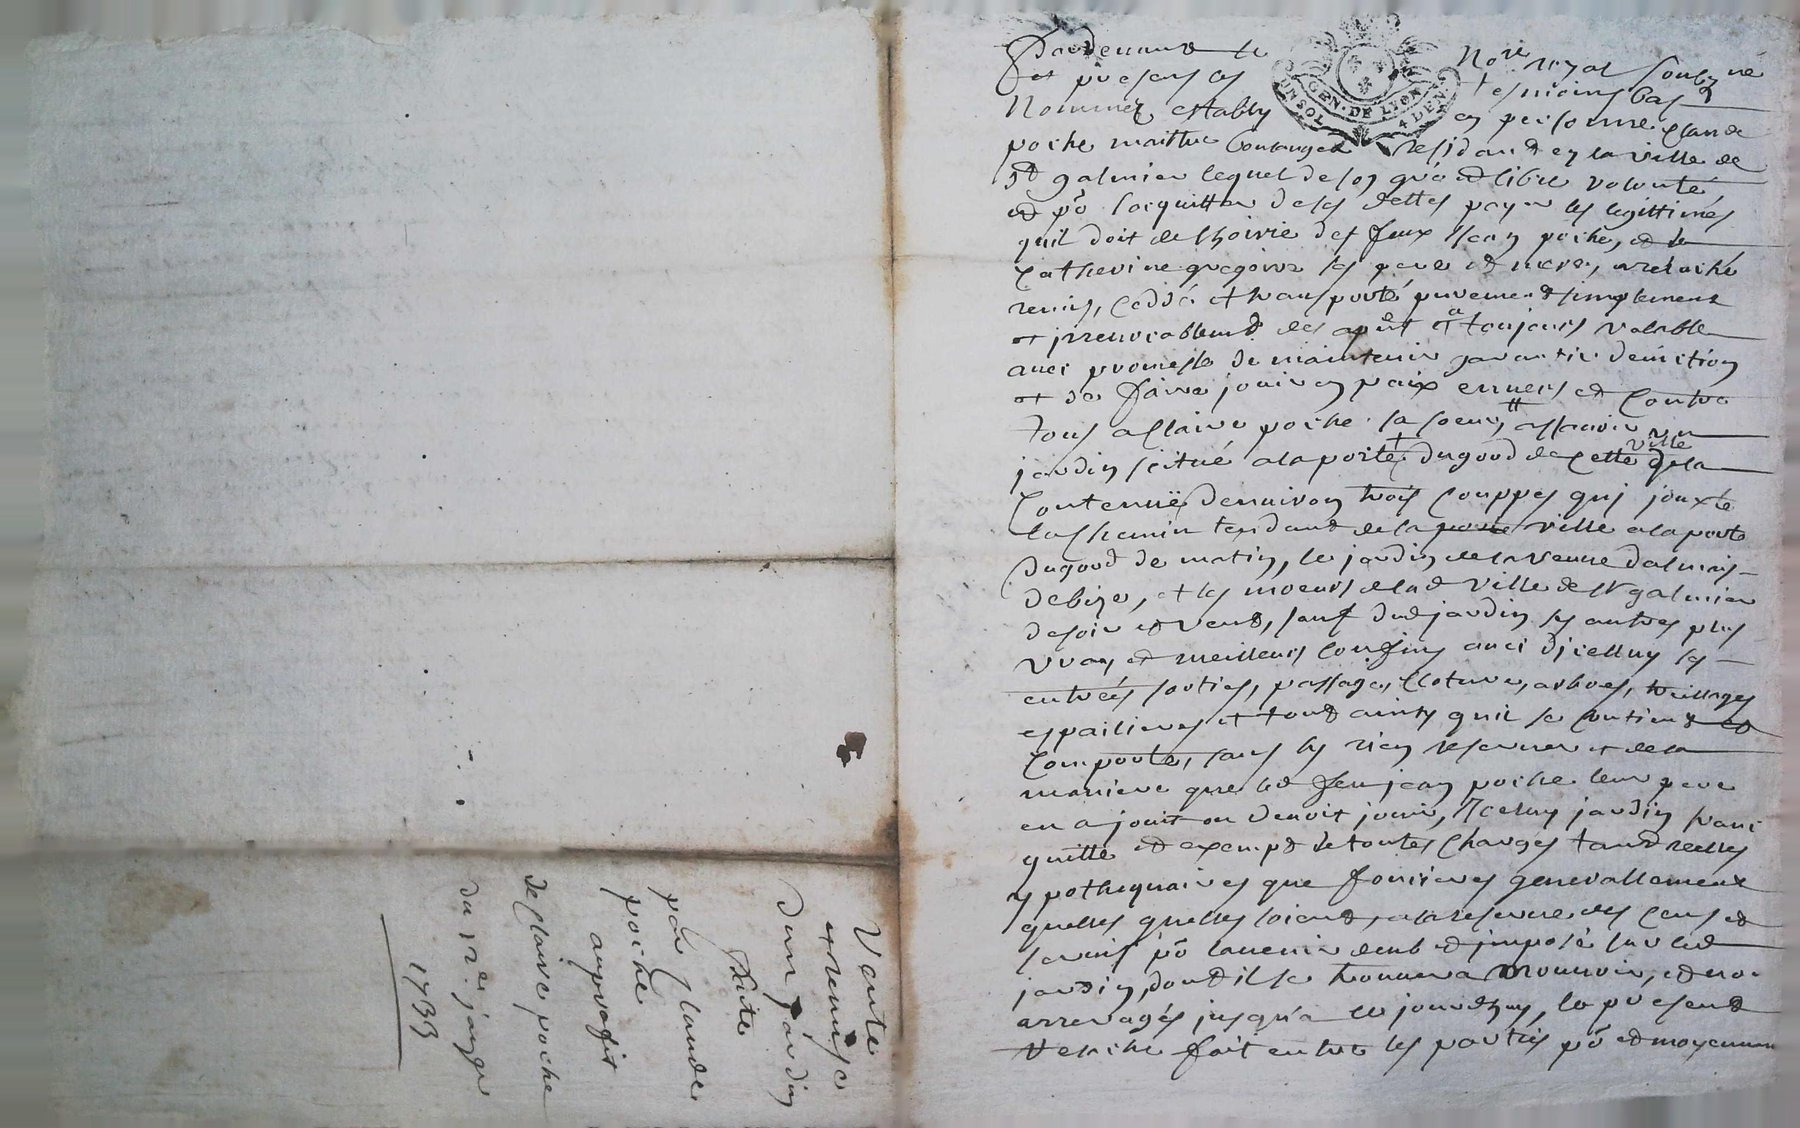 Pardevant le Nore royal soubzné
et presens les tesmoins bas
Nommez estably en personne Claude
poche maittre boulanger residand en la ville de
St galmier lequel de son gré et libre volonté
et po sacquitter de ses dettes payer les legittimes
quil doit de lhoirie des feux Jean poche, et de
Catherine gregoire ses pere et mere, a relaché
remis, ceddé et transporté purement et simplement
et irrevocablemt des apnt et a toujours valable
avec promesse de maintenir garantir deviction
et de faire jouir en paix envers et Contre
tous a Claire poche sa soeur, assavoir un
jardin scitué a la porte dugoud de Cette ville de la
Contenue denviron trois Couppes qui jouxte
las chemin tendand de la porte ville a la porte
dugoud de matin, le jardin de la veuve dalmais
de bize, et les meurs de lad ville de st galmier
de soir et vend, sauf dud jardin ses autres plus
vrays et meilleurs Confins avec dicelluy ses
entrées sorties, passages, Cloture, arbres, treillages
espailieres et toud ainsy quil se Contiend et
Comporte, sans sy rien reserver et de la
maniere que led feu jean poche leur pere
en a jouit ou devoit jouir, Icelluy jardin franc
quitte et exempd de toutes Charges tand reelles
ypothequaires que foncieres generallement
quelles quelles soiend, a la reserve des Cens et
servis po lavenir deub et imposé sur led
jardin, dond il se trouvera mouvoir, et non
arrerages jusqua ce jourdhuy, la presend
relache fait entre les parties po et moyennan
Vante
et remise
dun jardin
faite
par Claude
poche
au profit
de Claire poche
du 12e janvr
1733
GEN · DE LYON
UN SOL
4 DEN ·